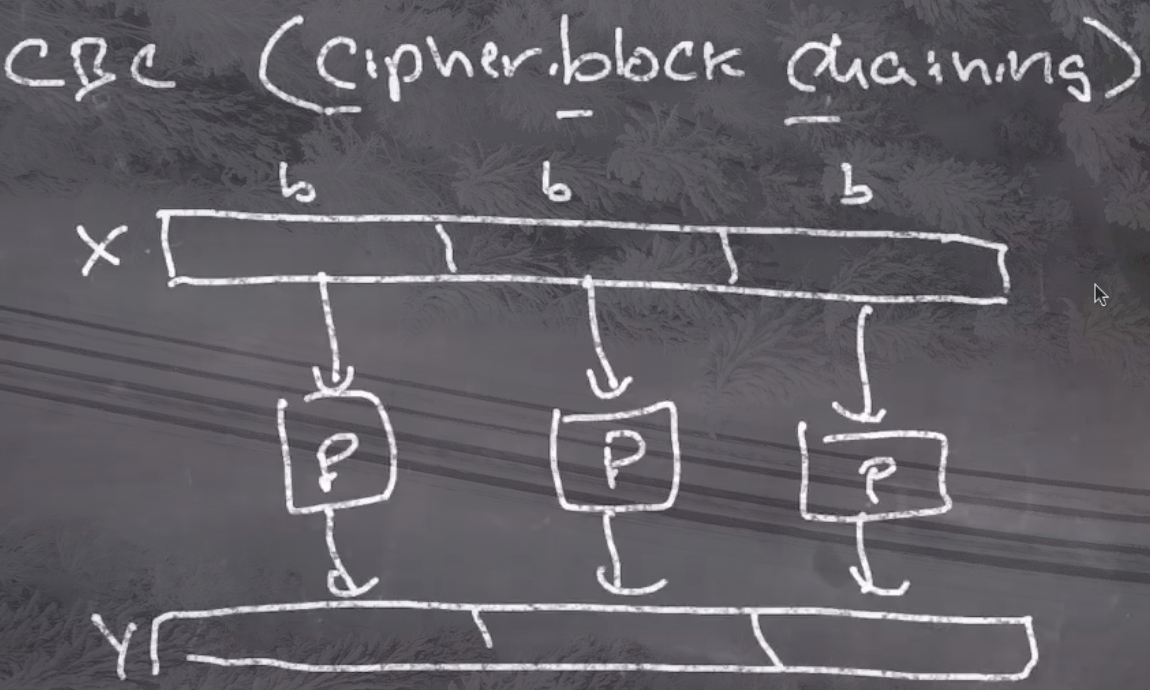 CBC (Cipher block chaining)
b b b
X
P P P
Y